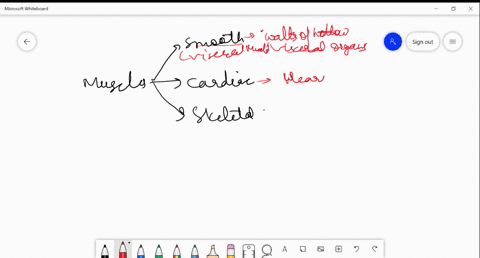 Microsoft Whiteboard
Sign out
Smooth → walls of hollow
(visceral visceral organs
Muscles
Cardiac → Hear
Skeletal
A